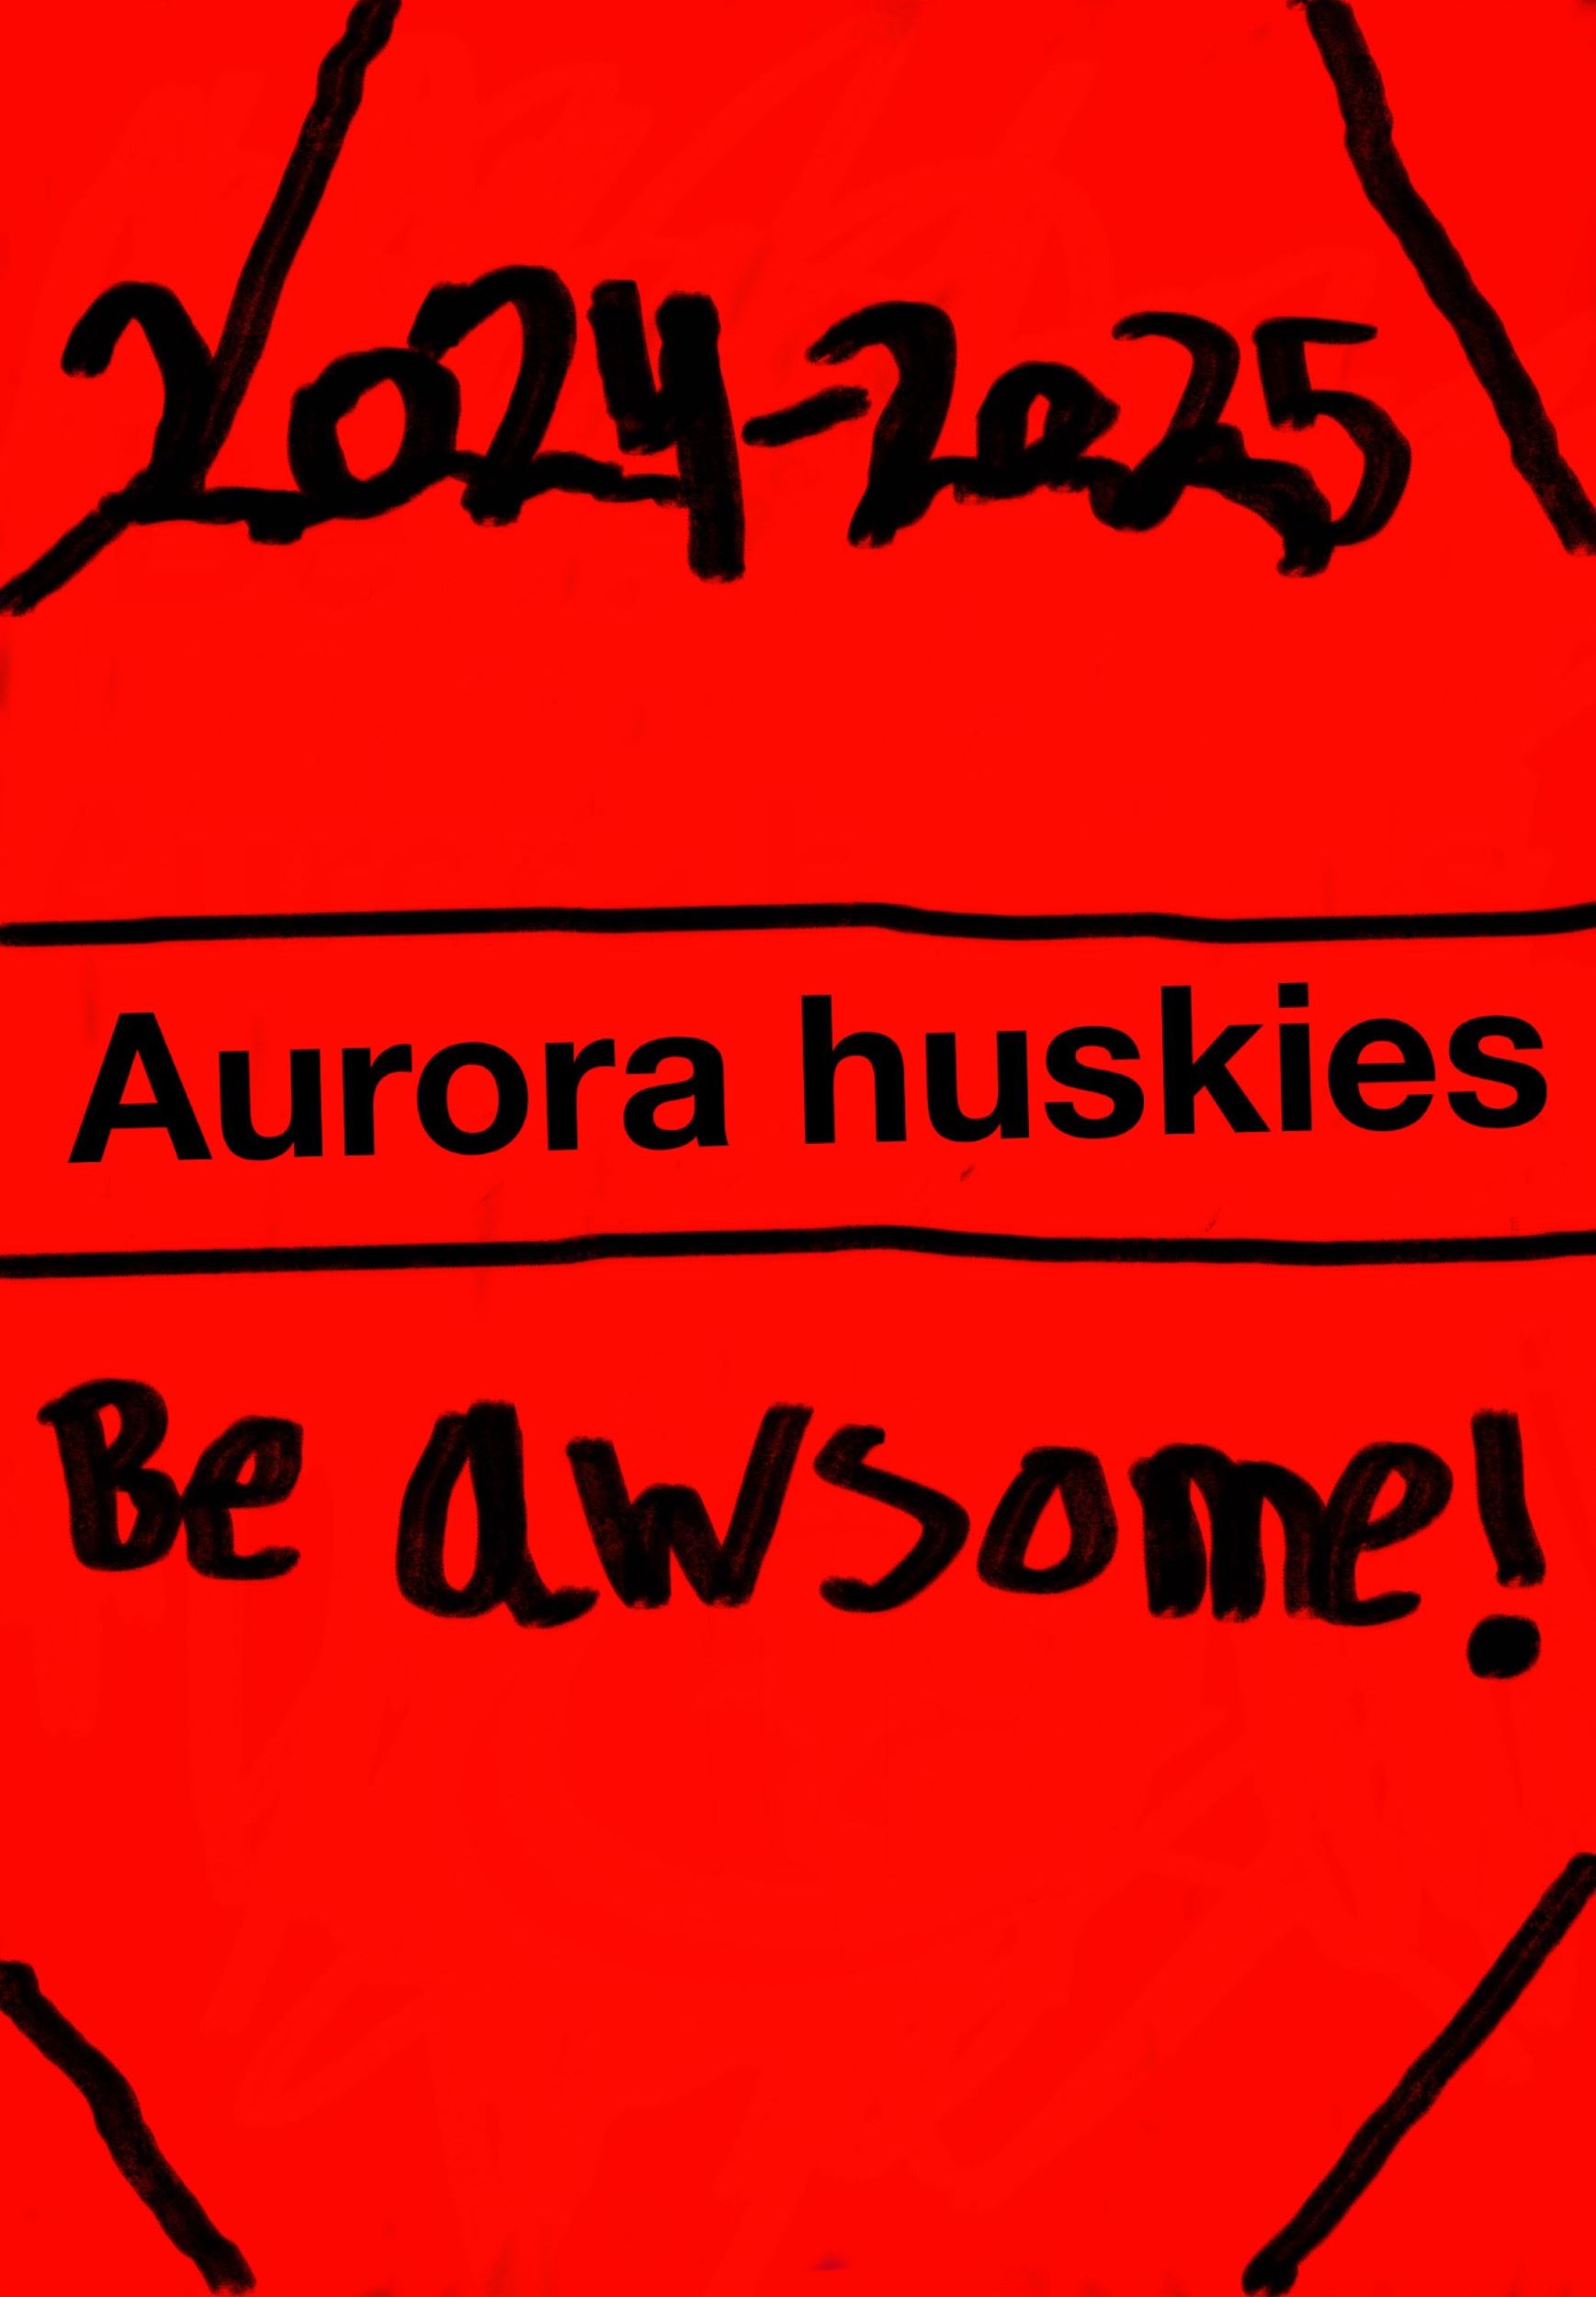 2024-2025
Aurora huskies
Be awsome!